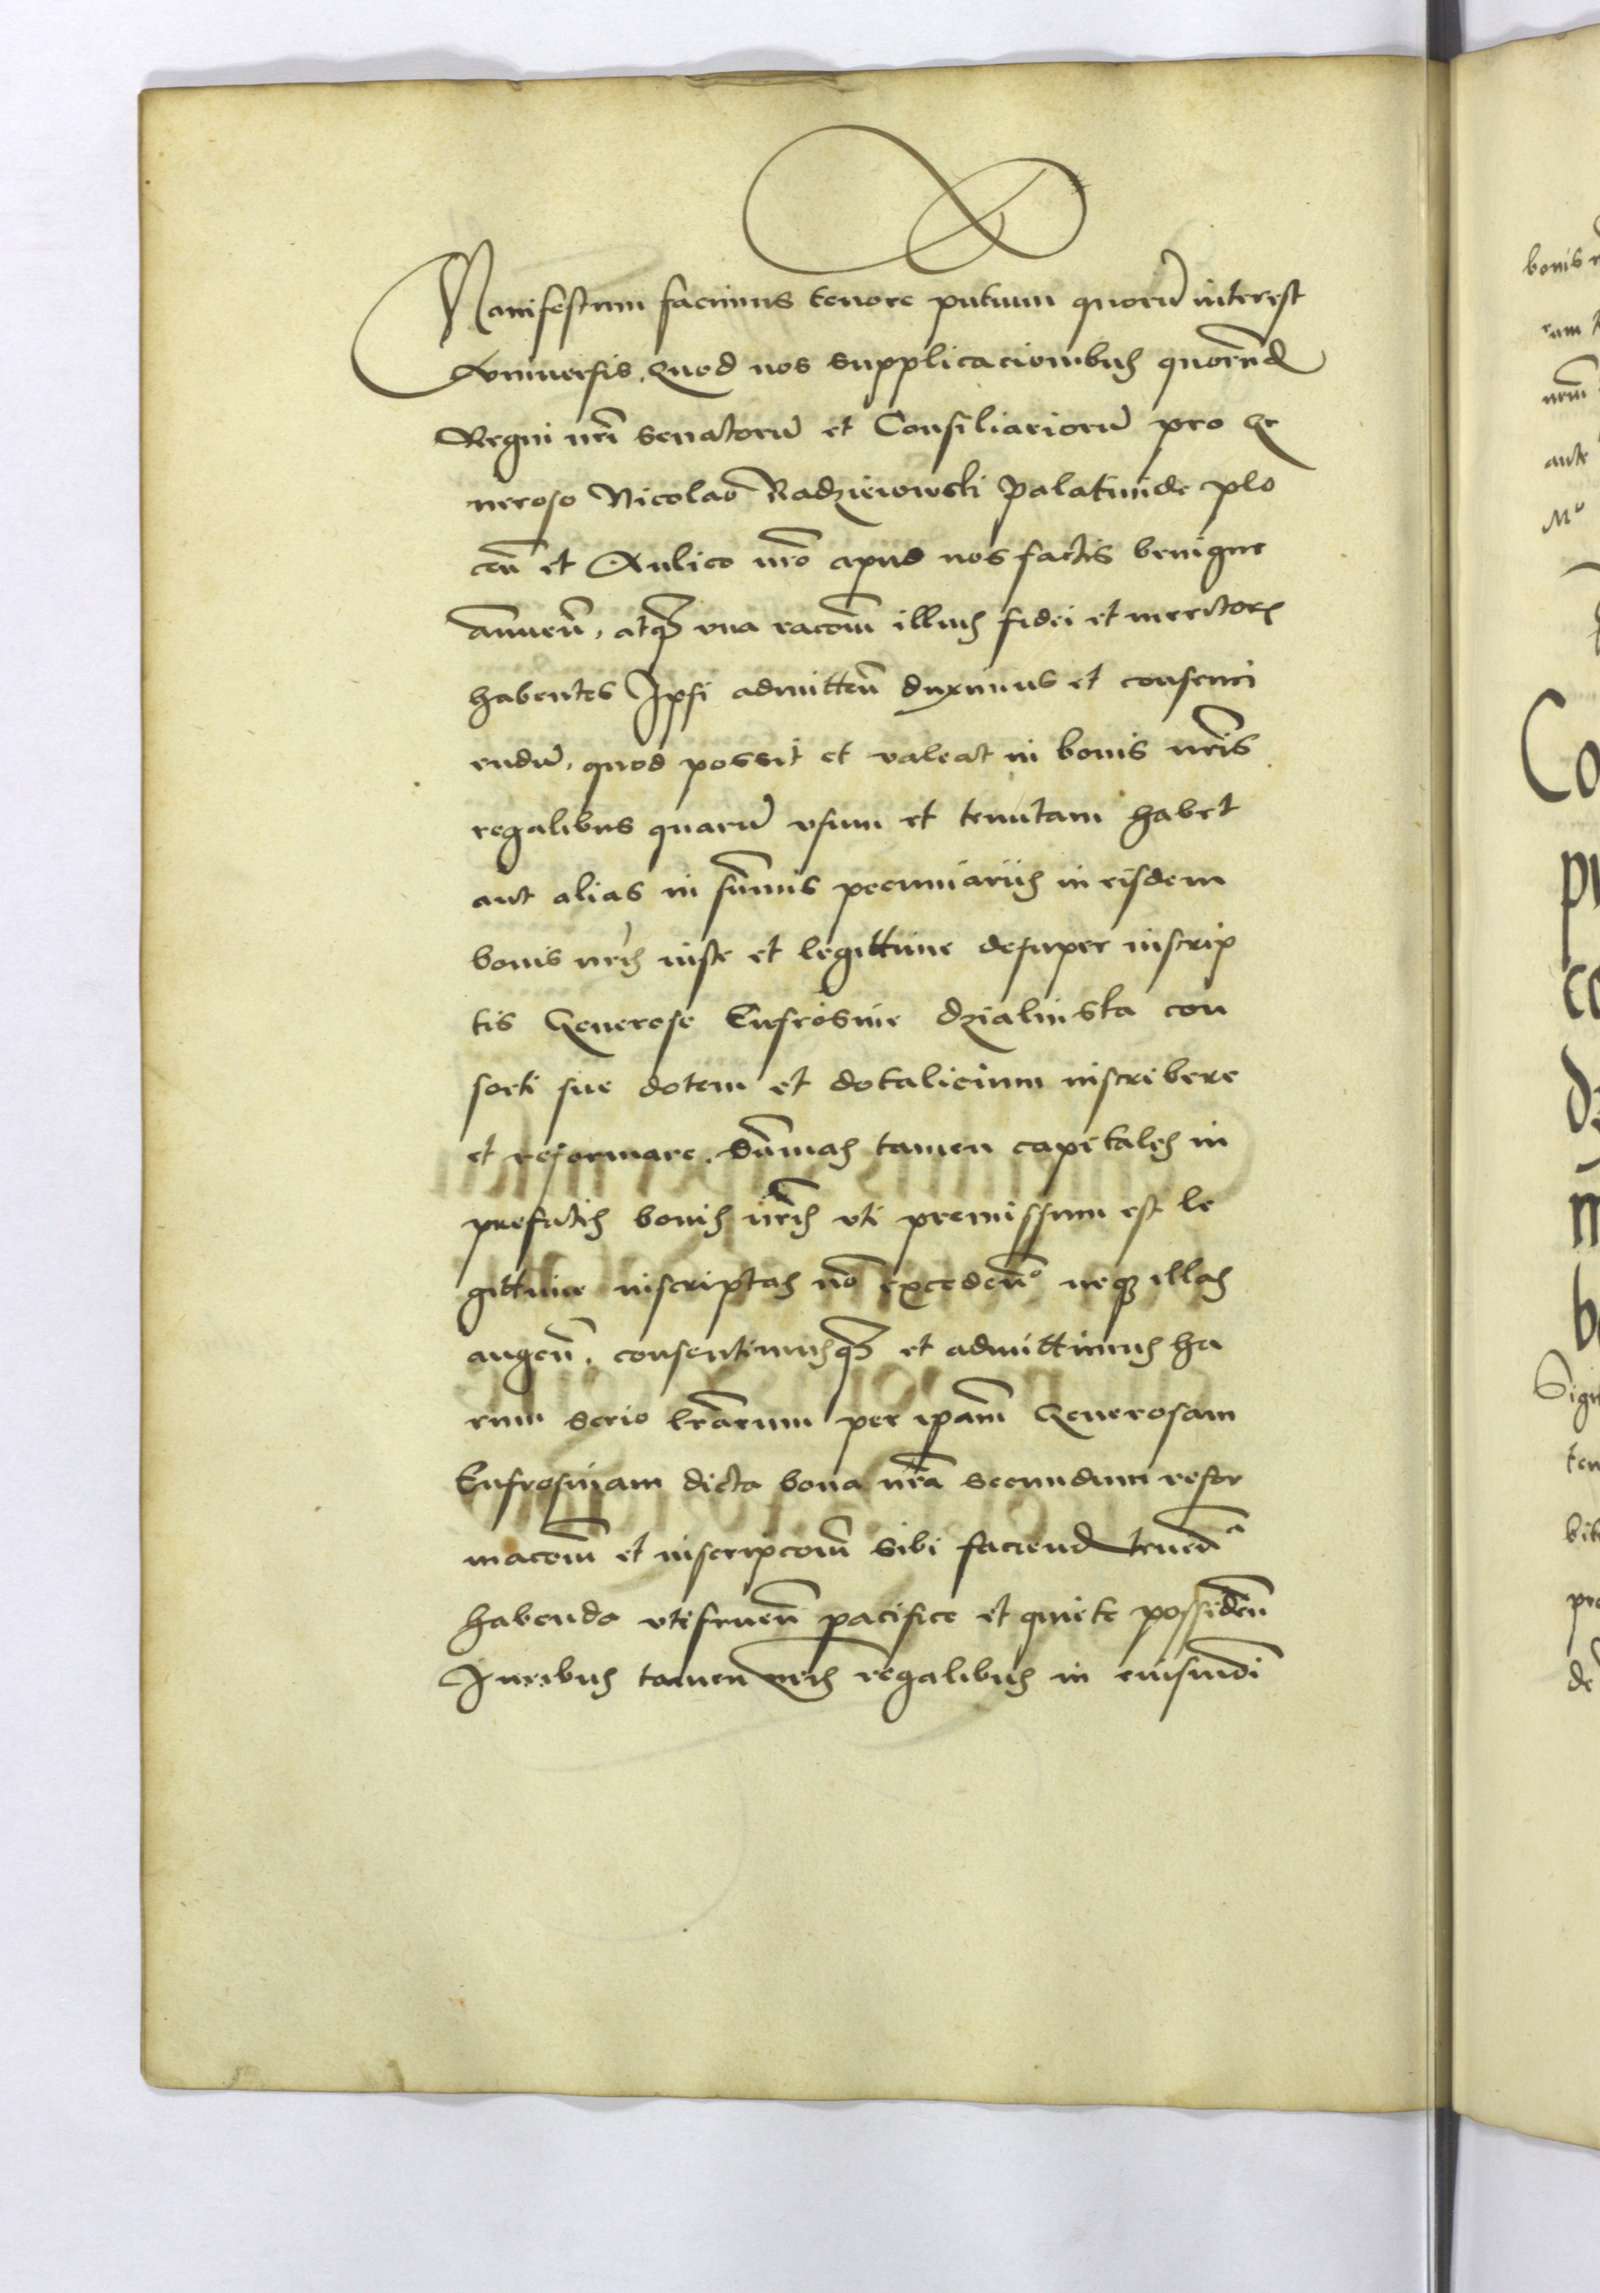 Manifestum facimus tenore pntium quorū interest
Vniuersis, Quod nos supplicacionibus quorund
Regni nri senatorū et Consiliariorū pro Ge
neroso Nicolao Radzieiowski Palatinide plo
ceñ et Aulico nro apud nos factis benigne
annueñ, atq3 vna racoem illius fidei et meritor
habentes Ipsi admitteñ duximus et consenci
endū, quod possit et valeat in bonis nris
regalibus quarū vsum et tenutam habet
aut alias in summis pecuniariis in eisdem
bonis nris iuste et legittime desuper inscrip
tis Generose Eufrosine dzialinska con
sorti sue dotem et dotalicium inscribere
et reformare. Summas tamen capitales in
prefatis bonis nris vti premissum est le
gittime inscriptas nō excedeñº neq3 illas
augeñ, consentimusq3 et admittimus ha
rum serio lrarum per ipam Generosam
Eufrosinam dicta bona nra secundum refor
macoem et inscripcoem sibi faciend tenedᵃ
habenda vtifrueñ pacifice et quiete possideñ
Iuribus tamen nris regalibus in eiusmodi
bonis
ante
Mº
Co
de